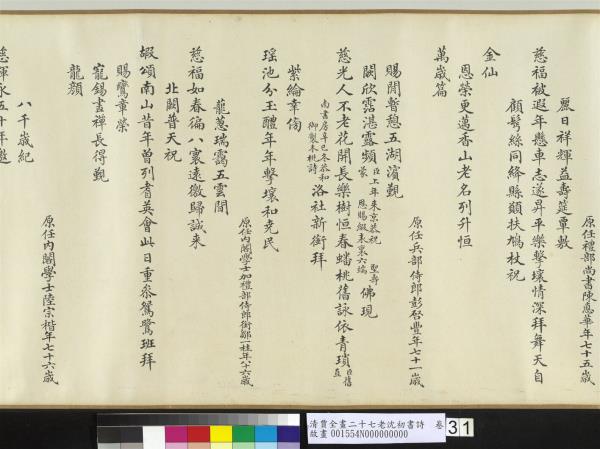 原任禮部尚書陳悳華年七十五歲
麗日祥輝益壽筵覃敷
慈福被遐年懸車志遂昇平樂擊壤情深拜舞天自
顧髩絲同絳縣顒扶鳩杖祝
金仙
恩榮更邁香山老名列升恒
萬歲篇
原任兵部侍郎彭啓豐年七十一歲
賜閒暫憩五湖濱覲
闕欣霑湛露頻
臣上年來京恭祝
聖壽
蒙
恩賜緞
佛現
慈光人不老花開長樂樹恒春蟠桃舊詠依青瑣
臣舊直
南書房辛巳冬恭和
御製
桃詩
洛社新銜拜
紫綸幸傍
瑶池分玉醴年年擊壤和堯民
原任內閣學士加禮部侍郎銜鄒一桂年八十六歲
蘢蔥瑞靄五雲間
慈福如春徧八寰遠徼歸誠来
北闕普天祝
嘏頌南山昔年曾列耆英會此日重叅鴛鷺班拜
賜鸞章榮
寵錫晝禪長得覲
龍顏
原任內閣學士陸宗楷年七十六歲
八千歲紀
慈暉永五十年
清賈全畫二十七老沈初書詩 卷 31
故畫 001554N000000000